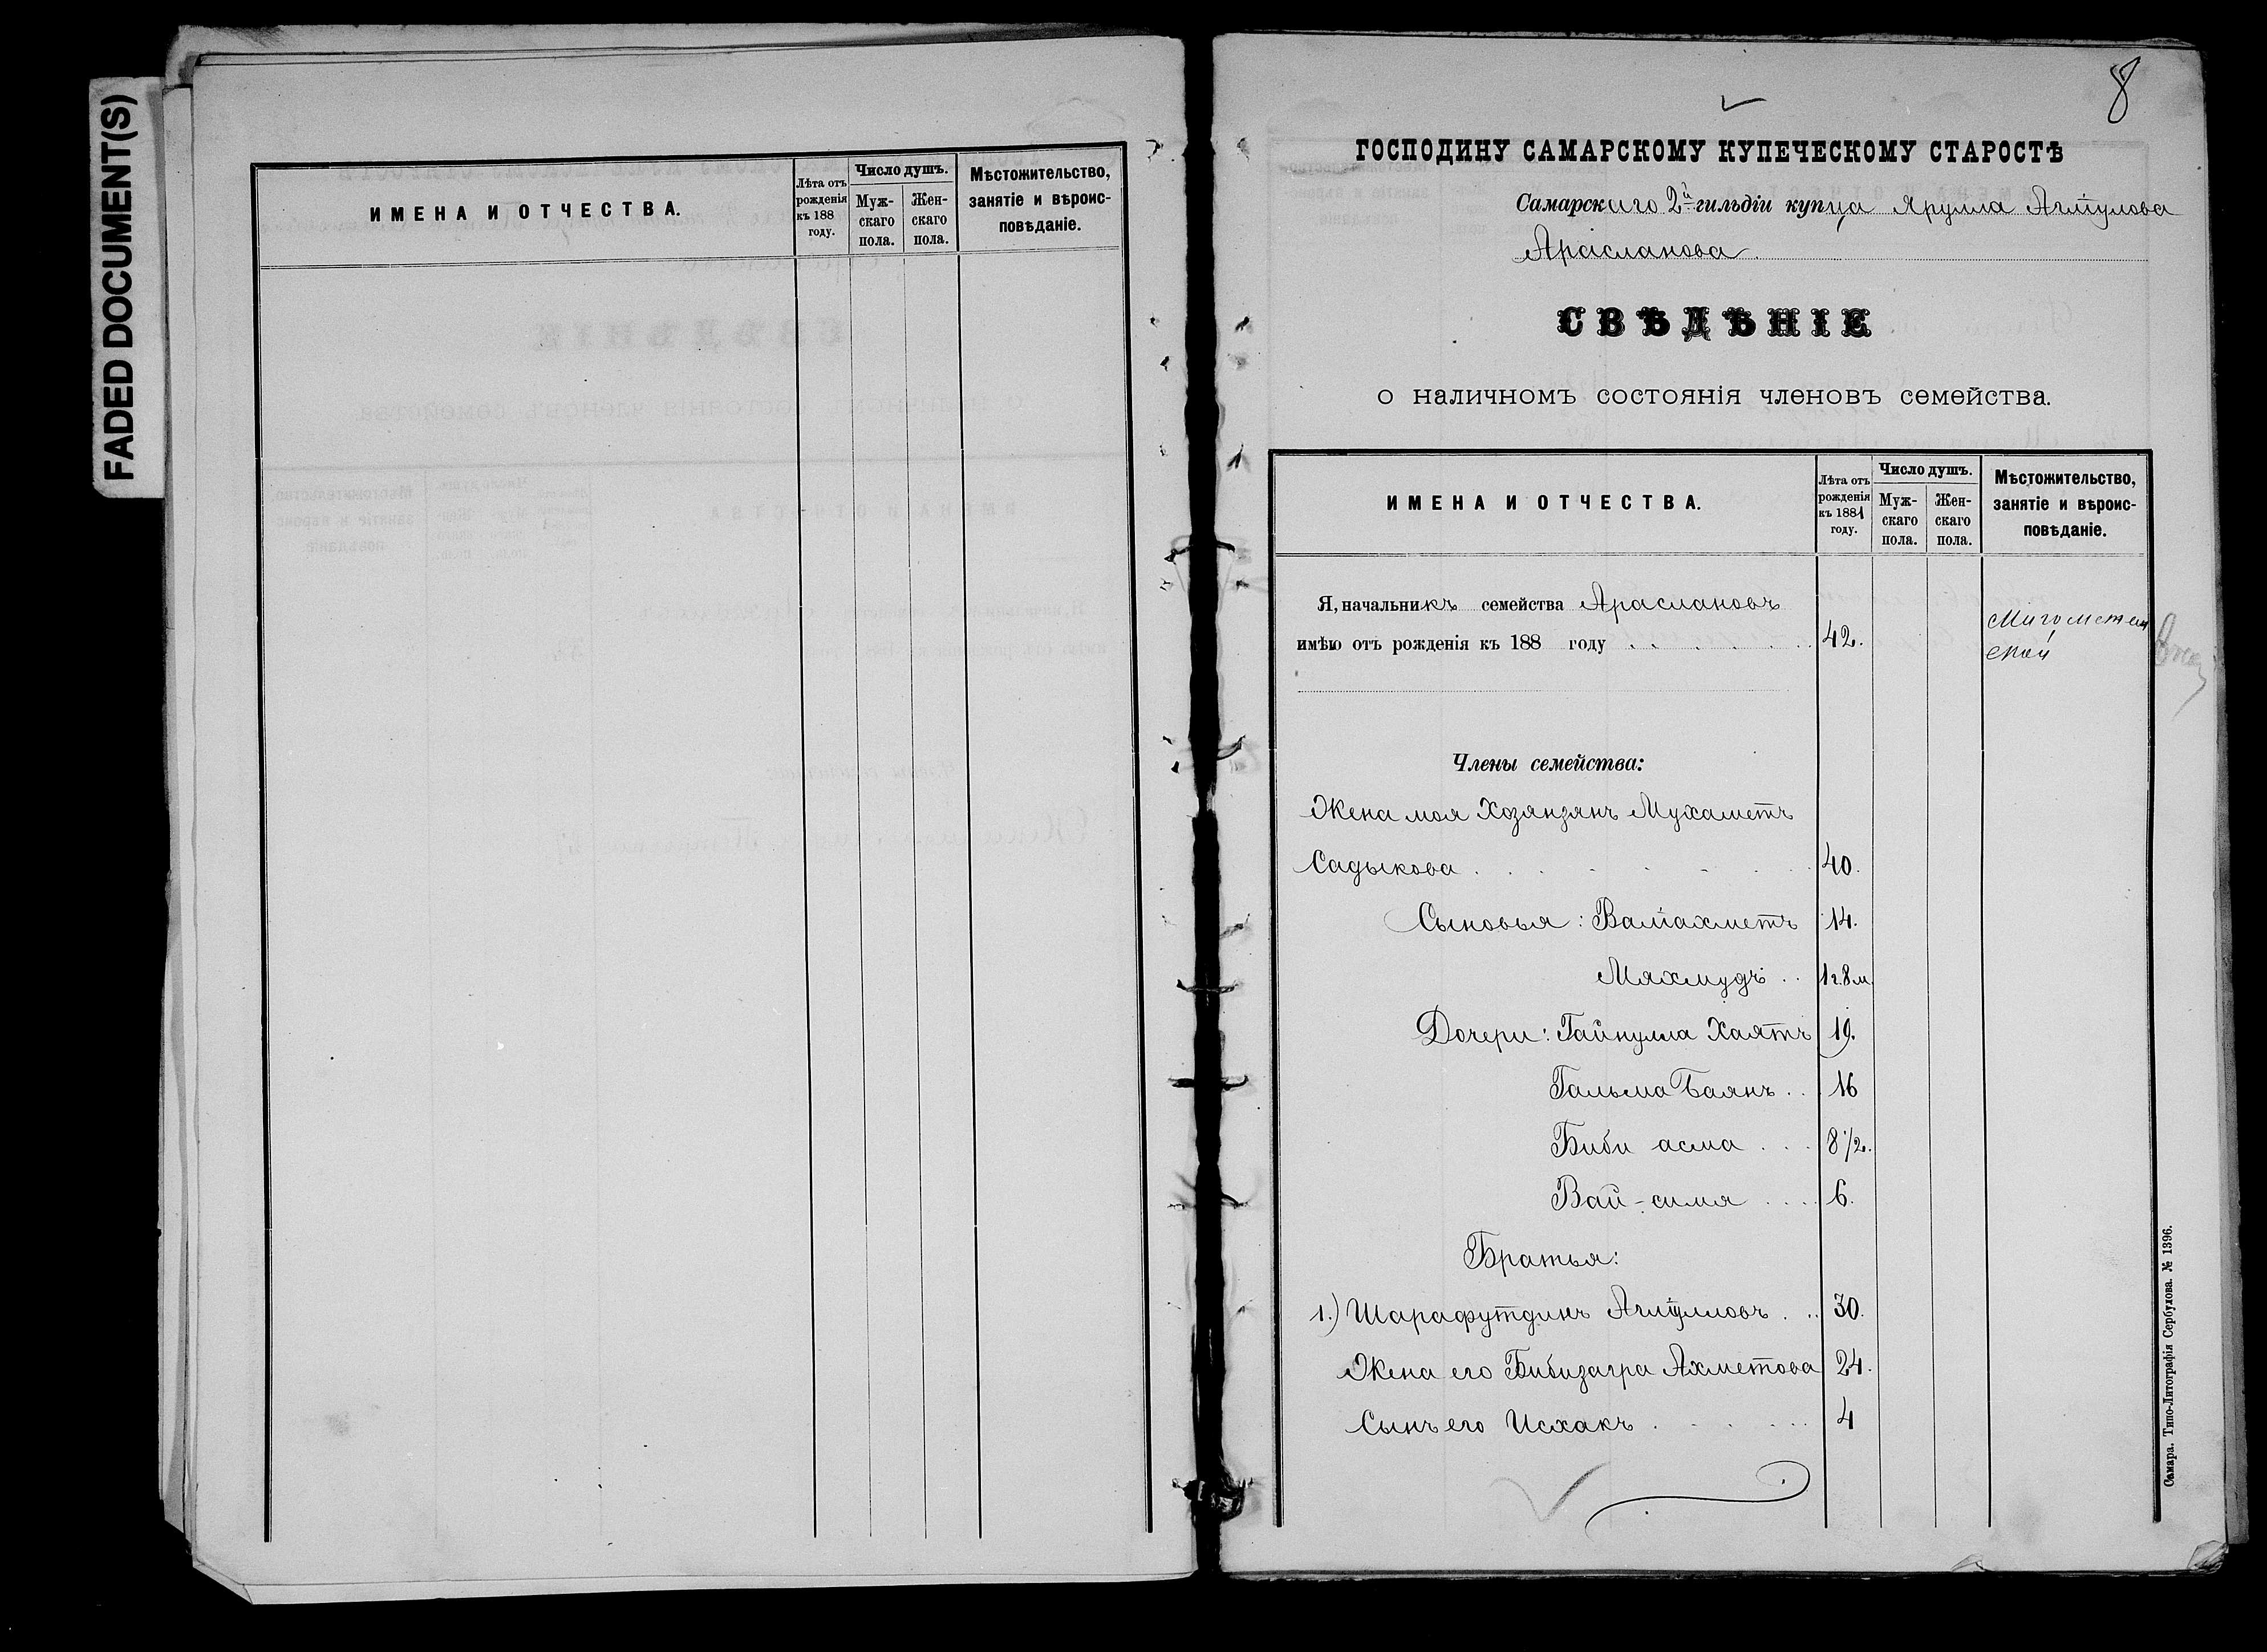 FADED DOCUMENT(S)
ИМЕНА И ОТЧЕСТВА.
Лѣта отъ рожденія къ 188 году.
Число душъ.
Мужскаго пола.
Женскаго пола.
Мѣстожительство, занятіе и вѣроисповѣданіе.
8
ГОСПОДИНУ САМАРСКОМУ КУПЕЧЕСКОМУ СТАРОСТѢ
Самарскаго 2й гильдіи купца Ярулла
Арасланова
СВѢДѢНІЕ
о наличномъ состоянія членовъ семейства.
ИМЕНА И ОТЧЕСТВА.
Лѣта отъ рожденія къ 1881 году.
Число душъ.
Мужскаго пола.
Женскаго пола.
Мѣстожительство, занятіе и вѣроисповѣданіе.
Я, начальникъ семейства Араслановъ
имѣю отъ рожденія къ 188 году 42.
Члены семейства:
Жена моя Хозянзянъ Мухаметъ
Садыкова 40.
Сыновья: Валіахметъ 14.
Мяхмудъ 1 г. 8 м.
Дочери: Гайнулла Хаятъ 19.
Гальма Баянъ 16
Биби асма 8 1/2.
Вай-симя 6.
Братья:
1.) Шарафутдинъ 30.
Жена его Бибизагра Ахметова 24.
Сынъ его Исхакъ 4
Самара. Типо-Литографія Сербулова. № 1396.